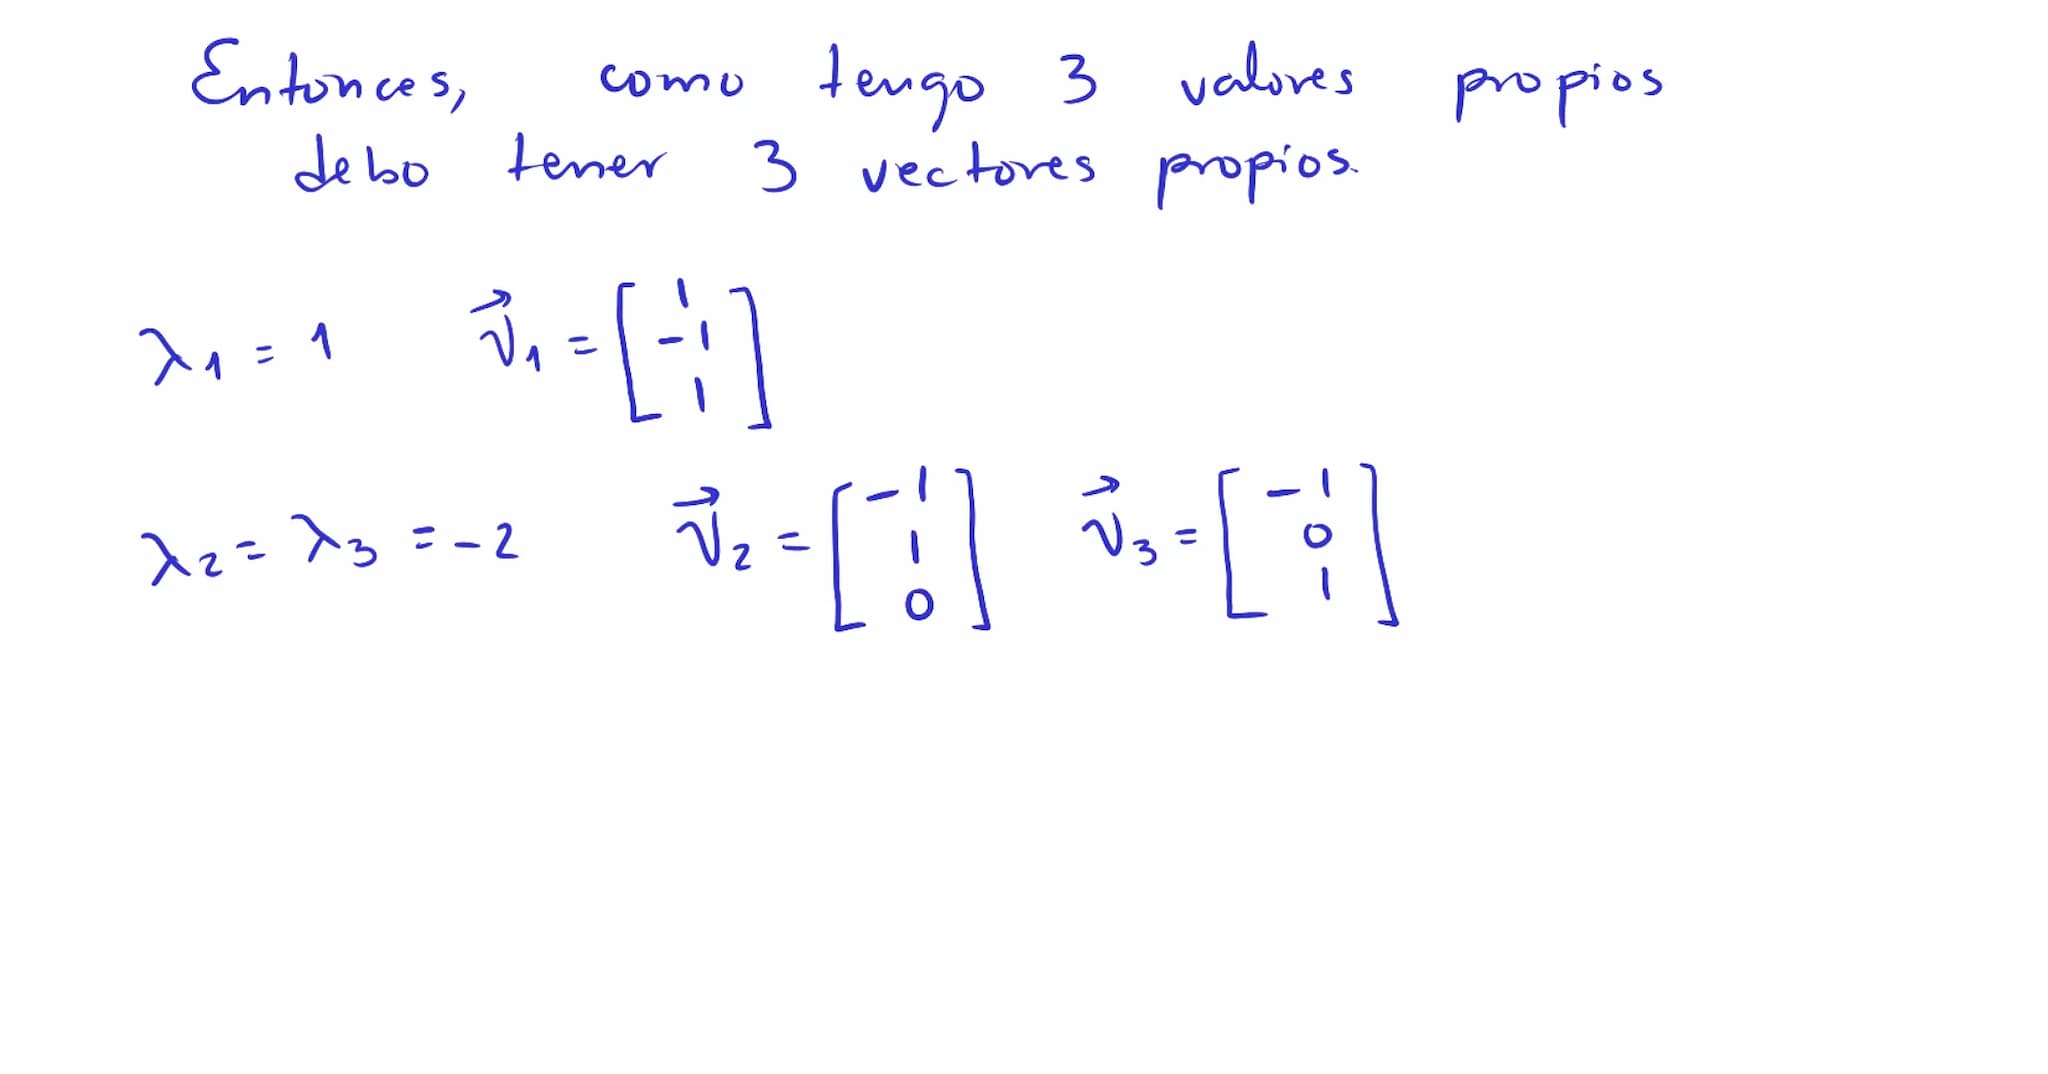 Entonces, como tengo 3 valores propios
debo tener 3 vectores propios.
λ₁ = 1 v⃗₁ = [1 -1 1]
λ₂ = λ₃ = -2 v⃗₂ = [-1 1 0] v⃗₃ = [-1 0 1]